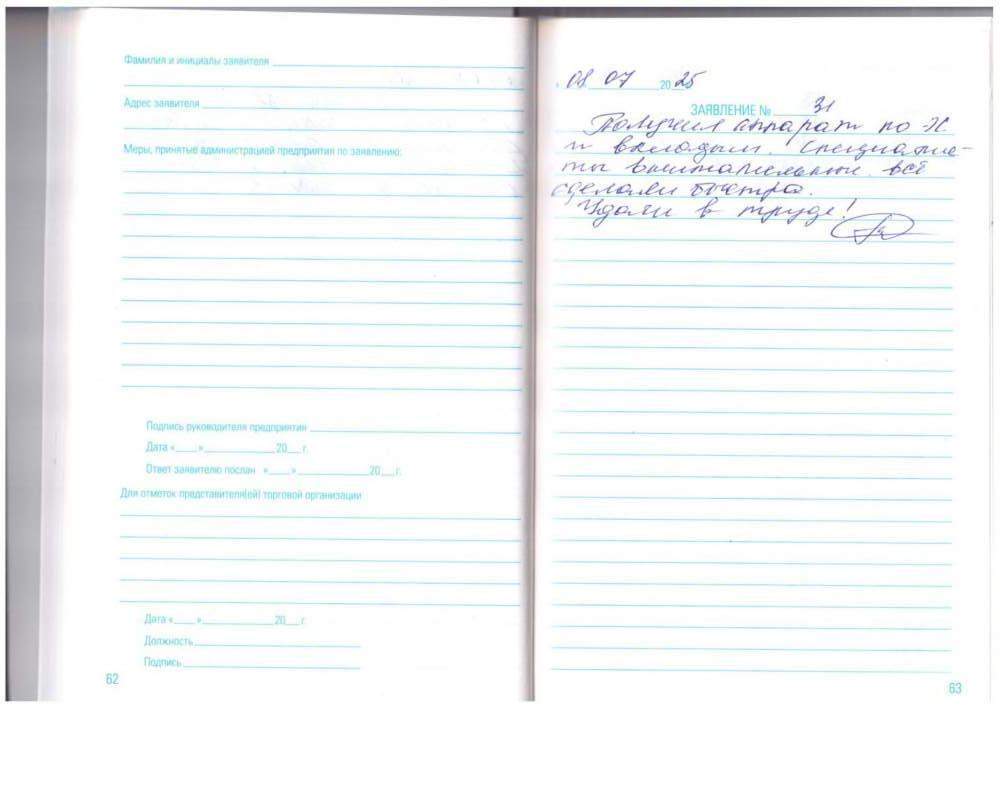 Фамилия и инициалы заявителя
Адрес заявителя
Меры, принятые администрацией предприятия по заявлению:
Подпись руководителя предприятия
Дата «____»____________20___г.
Ответ заявителю послан «____»____________20___г.
Для отметок представителя(ей) торговой организации
Дата «____»____________20___г.
Должность
Подпись
62
08 07 2025
ЗАЯВЛЕНИЕ № 31
Получил аппарат по
и вкладыш. Специалис-
ты внимательные. всё
сделали быстро.
Удачи в труде!
63